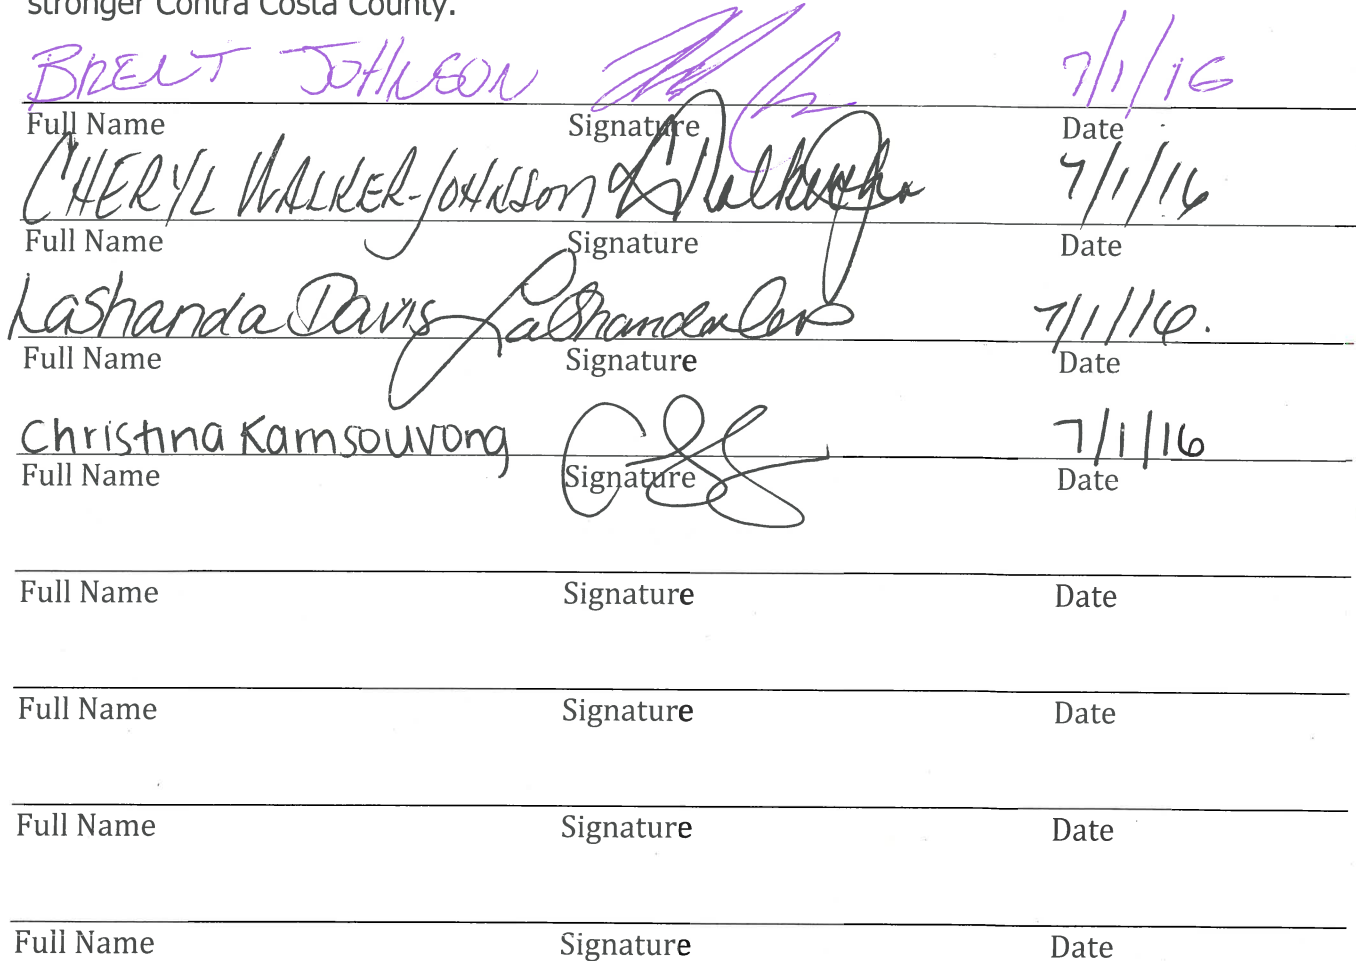 stronger Contra Costa County.
BRENT JOHNSON 7/1/16
Full Name Signature Date
CHERYL WALKER-JOHNSON 7/1/16
Full Name Signature Date
LaShanda Davis LaShanda Davis 7/1/16.
Full Name Signature Date
Christina Kamsouvong 7/1/16
Full Name Signature Date
Full Name Signature Date
Full Name Signature Date
Full Name Signature Date
Full Name Signature Date